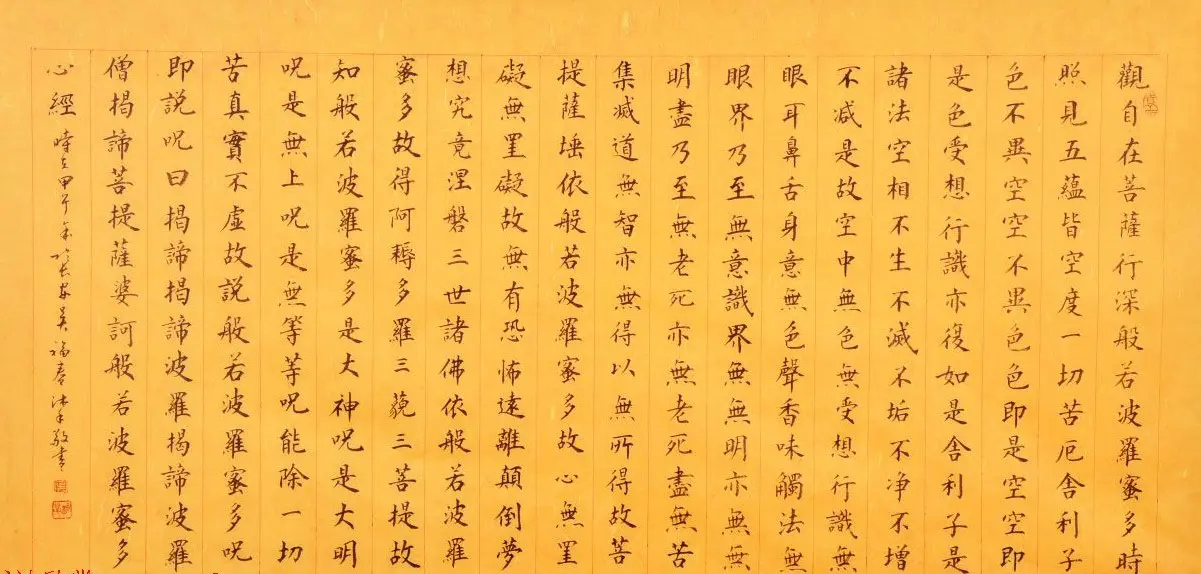 觀自在菩薩行深般若波羅蜜多時
照見五蘊皆空度一切苦厄舍利子
色不異空空不異色色即是空空即
是色受想行識亦復如是舍利子是
諸法空相不生不滅不垢不净不增
不减是故空中無色無受想行識無
眼耳鼻舌身意無色聲香味觸法無
眼界乃至無意識界無無明亦無無
明盡乃至無老死亦無老死盡無苦
集滅道無智亦無得以無所得故菩
提薩埵依般若波羅蜜多故心無罣
礙無罣礙故無有恐怖遠離顛倒夢
想究竟涅磐三世諸佛依般若波羅
蜜多故得阿耨多羅三藐三菩提故
知般若波羅蜜多是大神呪是大明
呪是無上呪是無等等呪能除一切
苦真實不虛故說般若波羅蜜多呪
即說呪曰揭諦揭諦波羅揭諦波羅
僧揭諦菩提薩婆訶般若波羅蜜多
心經 時在甲午年於長安吳福春沐手敬書